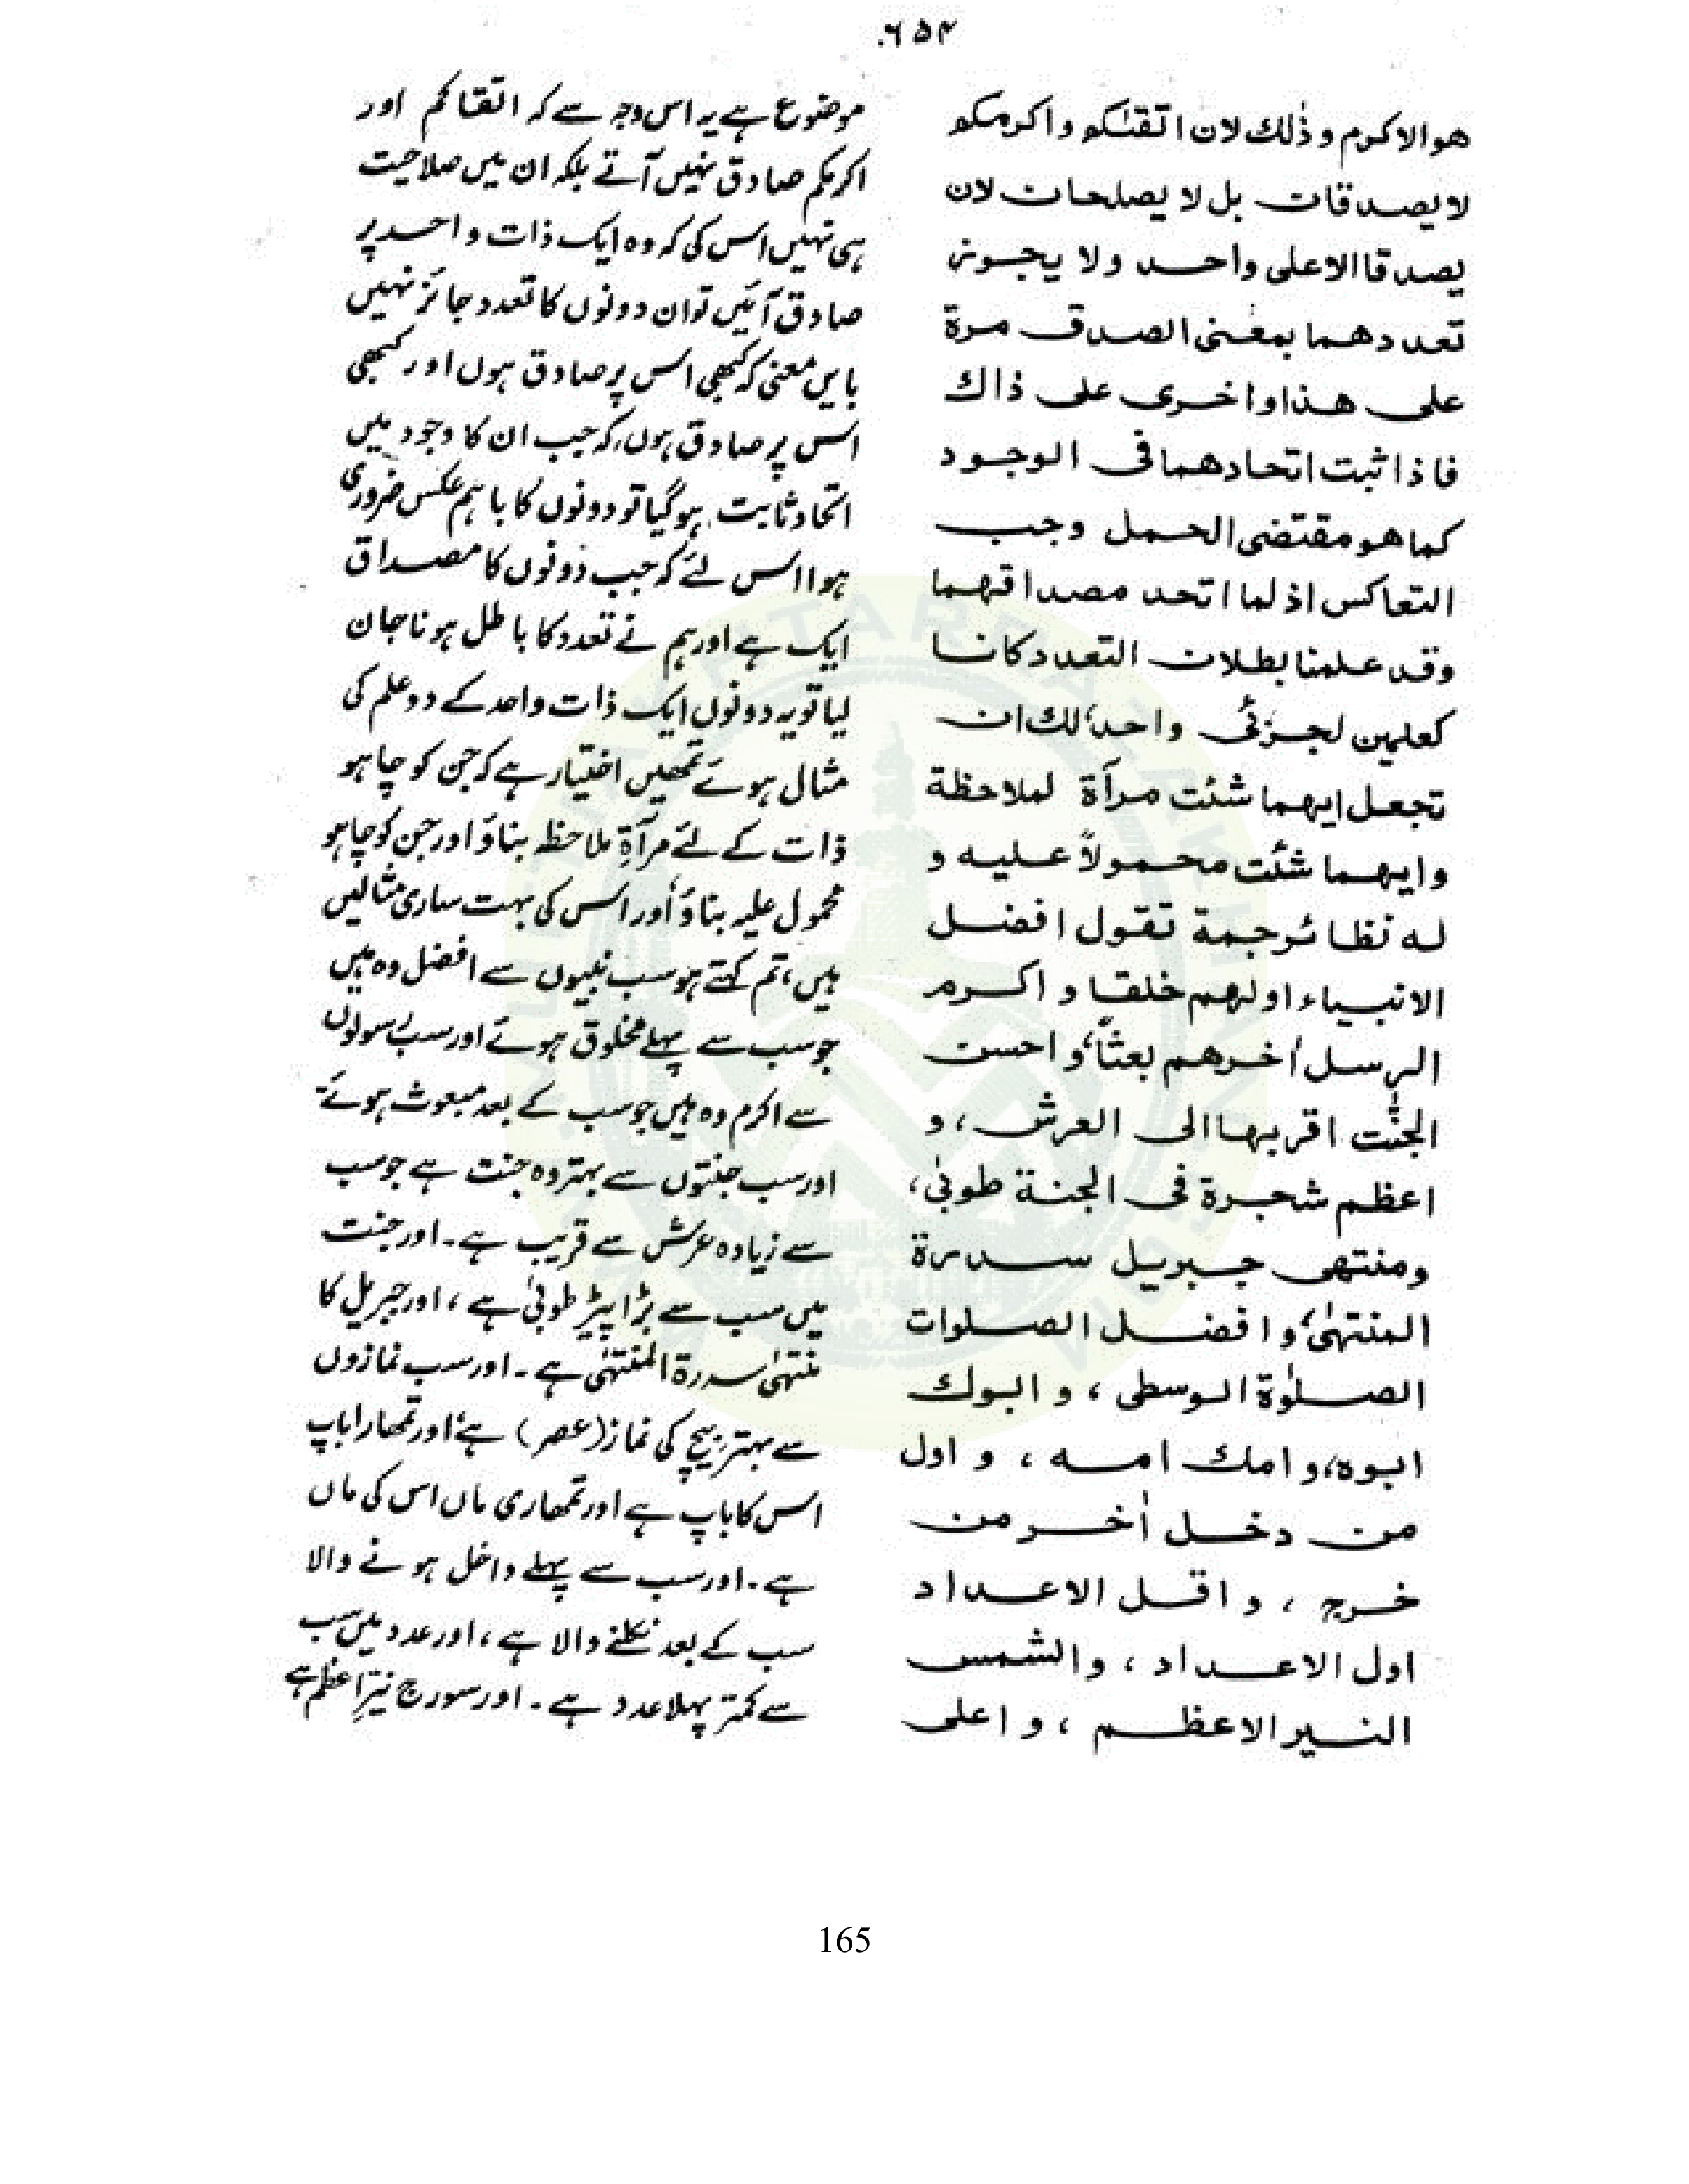 ۶۵۴
هو الاکرم و ذٰلك لان اتقٰىکم و اکرمکم
لا یصدقان بل لا یصلحان لان
یصدقا الا علی واحد ولا یجوز
تعددهما بمعنی الصدق مرة
علی هذا و اخری علی ذاك
فاذا ثبت اتحادهما فی الوجود
کما هو مقتضی الحمل وجب
التعاکس اذ لما اتحد مصداقهما
وقد علمنا بطلان التعدد کانا
کعلمین لجزئی واحد، لك ان
تجعل ایهما شئت مرآة لملاحظة
و ایهما شئت محمولاً علیه و
له نظائر جمة تقول افضل
الانبیاء اولهم خلقا و اکرم
الرسل اٰخرهم بعثاً، و احسن
الجنّٰت اقربها الی العرش، و
اعظم شجرة فی الجنة طوبیٰ،
ومنتهی جبریل سدرة
المنتهیٰ، و افضل الصلوات
الصلوٰة الوسطی، و ابوك
ابوه، و امك امه، و اول
من دخل اٰخر من
خرج، و اقل الاعداد
اول الاعداد، والشمس
النیر الاعظم، و اعلی
موضوع ہے یہ اس وجہ سے کہ اتقاکم اور
اکرمکم صادق نہیں آتے بلکہ ان میں صلاحیت
ہی نہیں اس کی کہ وہ ایک ذات واحد پر
صادق آئیں تو ان دونوں کا تعدد جائز نہیں
بایں معنی کہ کبھی اس پر صادق ہوں اور کبھی
اس پر صادق ہوں، کہ جب ان کا وجود میں
اتحاد ثابت ہوگیا تو دونوں کا باہم عکس ضروری
ہوا اس لئے کہ جب دونوں کا مصداق
ایک ہے اور ہم نے تعدد کا باطل ہونا جان
لیا تو یہ دونوں ایک ذات واحد کے دو علم کی
مثال ہوئے تمھیں اختیار ہے کہ جن کو چاہو
ذات کے لئے مرآةِ ملاحظہ بناؤ اور جن کو چاہو
محمول علیہ بناؤ اور اس کی بہت ساری مثالیں
ہیں، تم کہتے ہو سب نبیوں سے افضل وہ ہیں
جو سب سے پہلے مخلوق ہوئے اور سب رسولوں
سے اکرم وہ ہیں جو سب کے بعد مبعوث ہوئے
اور سب جنتوں سے بہتر وہ جنت ہے جو سب
سے زیادہ عرش سے قریب ہے۔ اور جنت
میں سب سے بڑا پیڑ طوبیٰ ہے، اور جبریل کا
منتہیٰ سدرة المنتہیٰ ہے۔ اور سب نمازوں
سے بہتر بیچ کی نماز (عصر) ہے اور تمھارا باپ
اس کا باپ ہے اور تمھاری ماں اس کی ماں
ہے۔ اور سب سے پہلے داخل ہونے والا
سب کے بعد نکلنے والا ہے، اور عدد میں سب
سے کمتر پہلا عدد ہے۔ اور سورج نیّرِ اعظم ہے
165